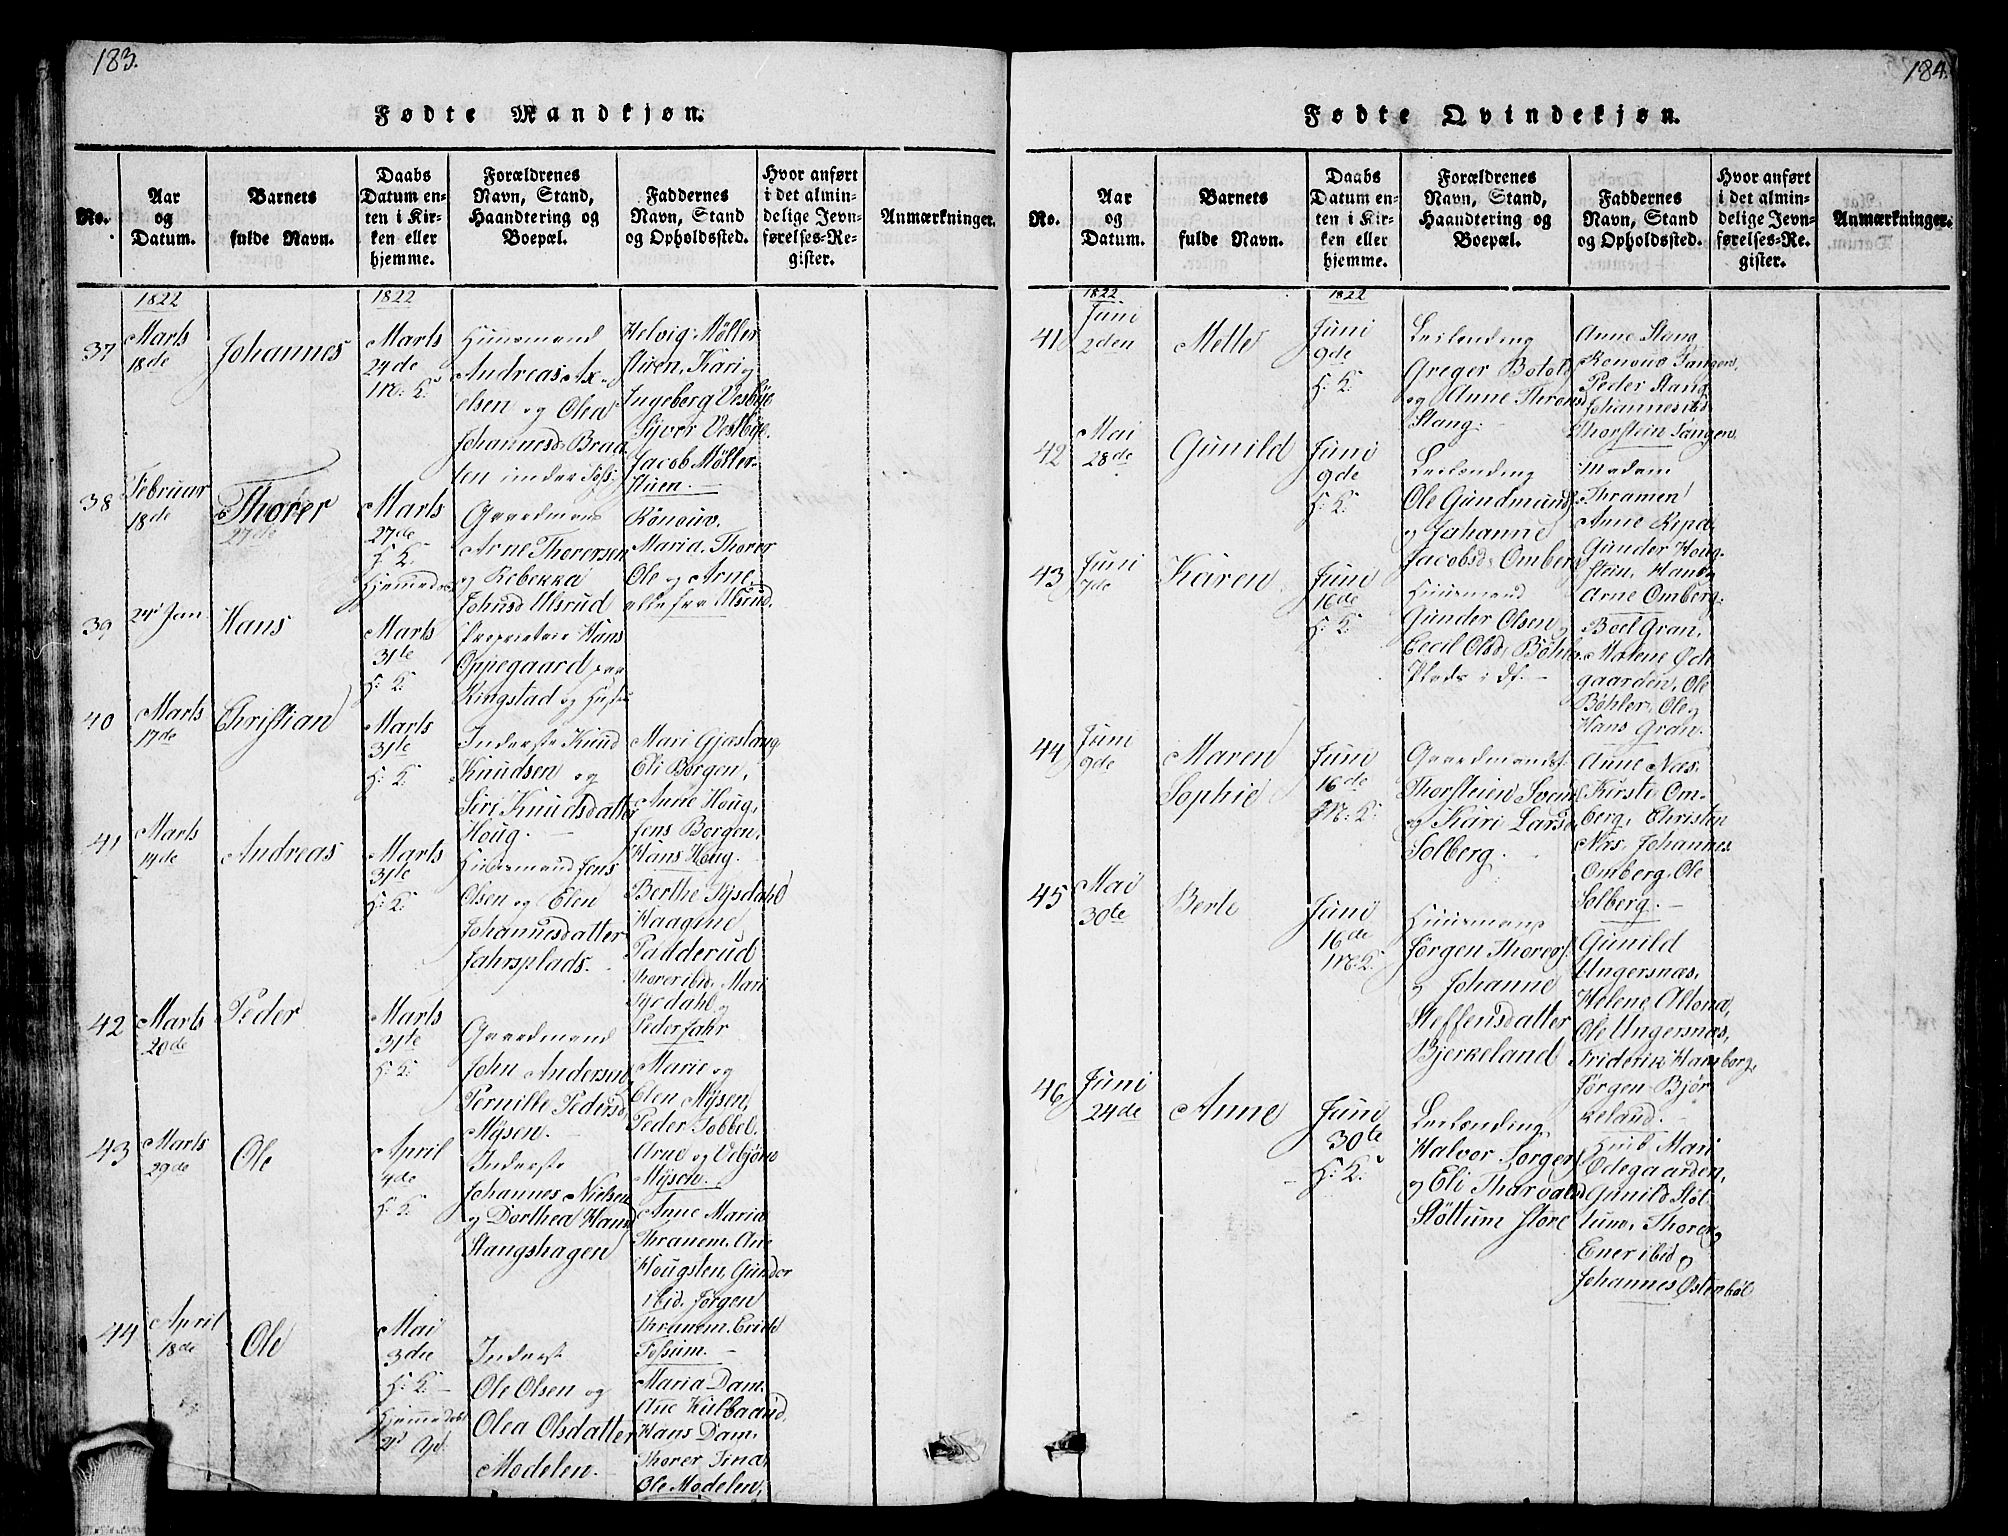 183.
Fødte Mandkjøn.
No.
Aar og Datum.
Barnets fulde Navn.
Daabs Datum enten i Kirken eller hjemme.
Forældrenes Navn, Stand, Haandtering og Boepæl.
Faddernes Navn, Stand og Opholdssted.
Hvor anført i det almindelige Jevnførelses-Register.
Anmærkninger.
1822
1822
37
Marts
18de
Johannes
Marts
24de
M: K:
Huusmand
Andreas Ax-
elsen og Olea
Johannesd: Braa
ten under
Helvig Møller
stuen, Kari og
Ingeborg Vesbye
Syver Vestbye.
Jacob Møller-
stuen.
38
Februar
18de
Thorer
27de
Marts
27de
H: K:
Hjemmedøbt
Gaardmand
Arne Thorersen
og Rebekka
Johnsd Ulsrud
Rønouv,
Maria, Thorer
Ole og Arne
alle fra Ulsrud.
39
24 Jan
Hans
Marts
31te
H: K:
Proprietair Hans
Oppegaard paa
Ringstad og Hustr
40
Marts
17de
Christian
Marts
31te
H: K:
Inderste Knud
Knudsen og
Siri Knudsdatter
Houg.
Mari Gjæslaug
Eli Borgen,
Anne Houg,
Jens Borgen,
Hans Houg.
41
Marts
14de
Andreas
Marts
31te
H: K:
Huusmand Jens
Olsen og Elen
Johannesdatter
Jahrsplads.
Berthe Sysdahl
Haagine
Padderud
Thorer ibid, Mari
Sysdahl og
Peder Jahr
42
Marts
20de
Peder
Marts
31te
H: K:
Gaardmand
John Andersen
Pernille Pedersd
Mysen.
Marie og
Elen Mysen,
Peder Sobbel,
Arne og Vebjørn
Mysen.
43
Marts
29de
Ole
April
4de
H: K:
Inderste
Johannes Nielsen
og Dorthea Hansd
Stangshagen
Anne Maria
Thranem. Ane
Hougsten, Gunder
ibid. Jørgen
Thranem. Erick
Fossum.
44
April
18de
Ole
Mai
3die
H: K.
Hjemmedøbt
21 Apr.
Inderst
Ole Olsen og
Olea Olsdatter
Modelen.
Maria Dam.
Ane Kulbraand,
Hans Dam,
Thorer Tina,
Ole Modelen,
184.
Fødte Qvindekjøn.
No.
Aar og Datum.
Barnets fulde Navn.
Daabs Datum enten i Kirken eller hjemme.
Forældrenes Navn, Stand, Haandtering og Boepæl.
Faddernes Navn, Stand og Opholdssted.
Hvor anført i det almindelige Jevnførelses-Register.
Anmærkninger.
1822
1822
41
Juni
2den
Mette
Juni
9de
H: K:
Leilending
Greger Botolf
og Anne Thronds
Stang.
Anne Stang
Rønouv Tangen,
Peder Stang
Johannes ibid
Thorstein Tangen
42
Mai
28de
Gunild
Juni
9de
H: K:
Leilending
Ole Gundmund
og Johanne
Jacobsd: Omberg
Madam
Thramen
Anne Ripa,
Gunder Houg-
stein, Hans
Arne Omberg.
43
Juni
7de
Karen
Juni
16de
H: K:
Huusmand
Gunder Olsen
Cecil Olsd: Bøhler
Plads
Boel Gran,
Malene Øde
gaarden, Ole
Bøhler, Ole og
Hans Gran.
44
Juni
9de
Maren
Sophie
Juni
16de
M: K:
Gaardmand
Thorsteien Svend
og Kari Larsd
Solberg.
Anne Næs
Kirsti Om-
berg, Christen
Næs, Johannes
Omberg, Ole
Solberg.
45
Mai
30te
Berte
Juni
16de
M: K:
Huusmand
Jørgen Thorers
og Johanne
Steffensdatter
Bjerkeland
Gunild
Ungersnæs,
Helene, Altona,
Ole Ungersnæs,
Friderik Hamborg,
Jørgen Bjør
keland.
46
Juni
24de
Anne
Juni
30te
H: K:
Leilending
Halvor Jørgens
og Eli Tharvalds
Støttum store
Mari
Ødegaarden,
Gunild Støt
tum, Thorer og
Ener ibid og
Johannes Østenbøl